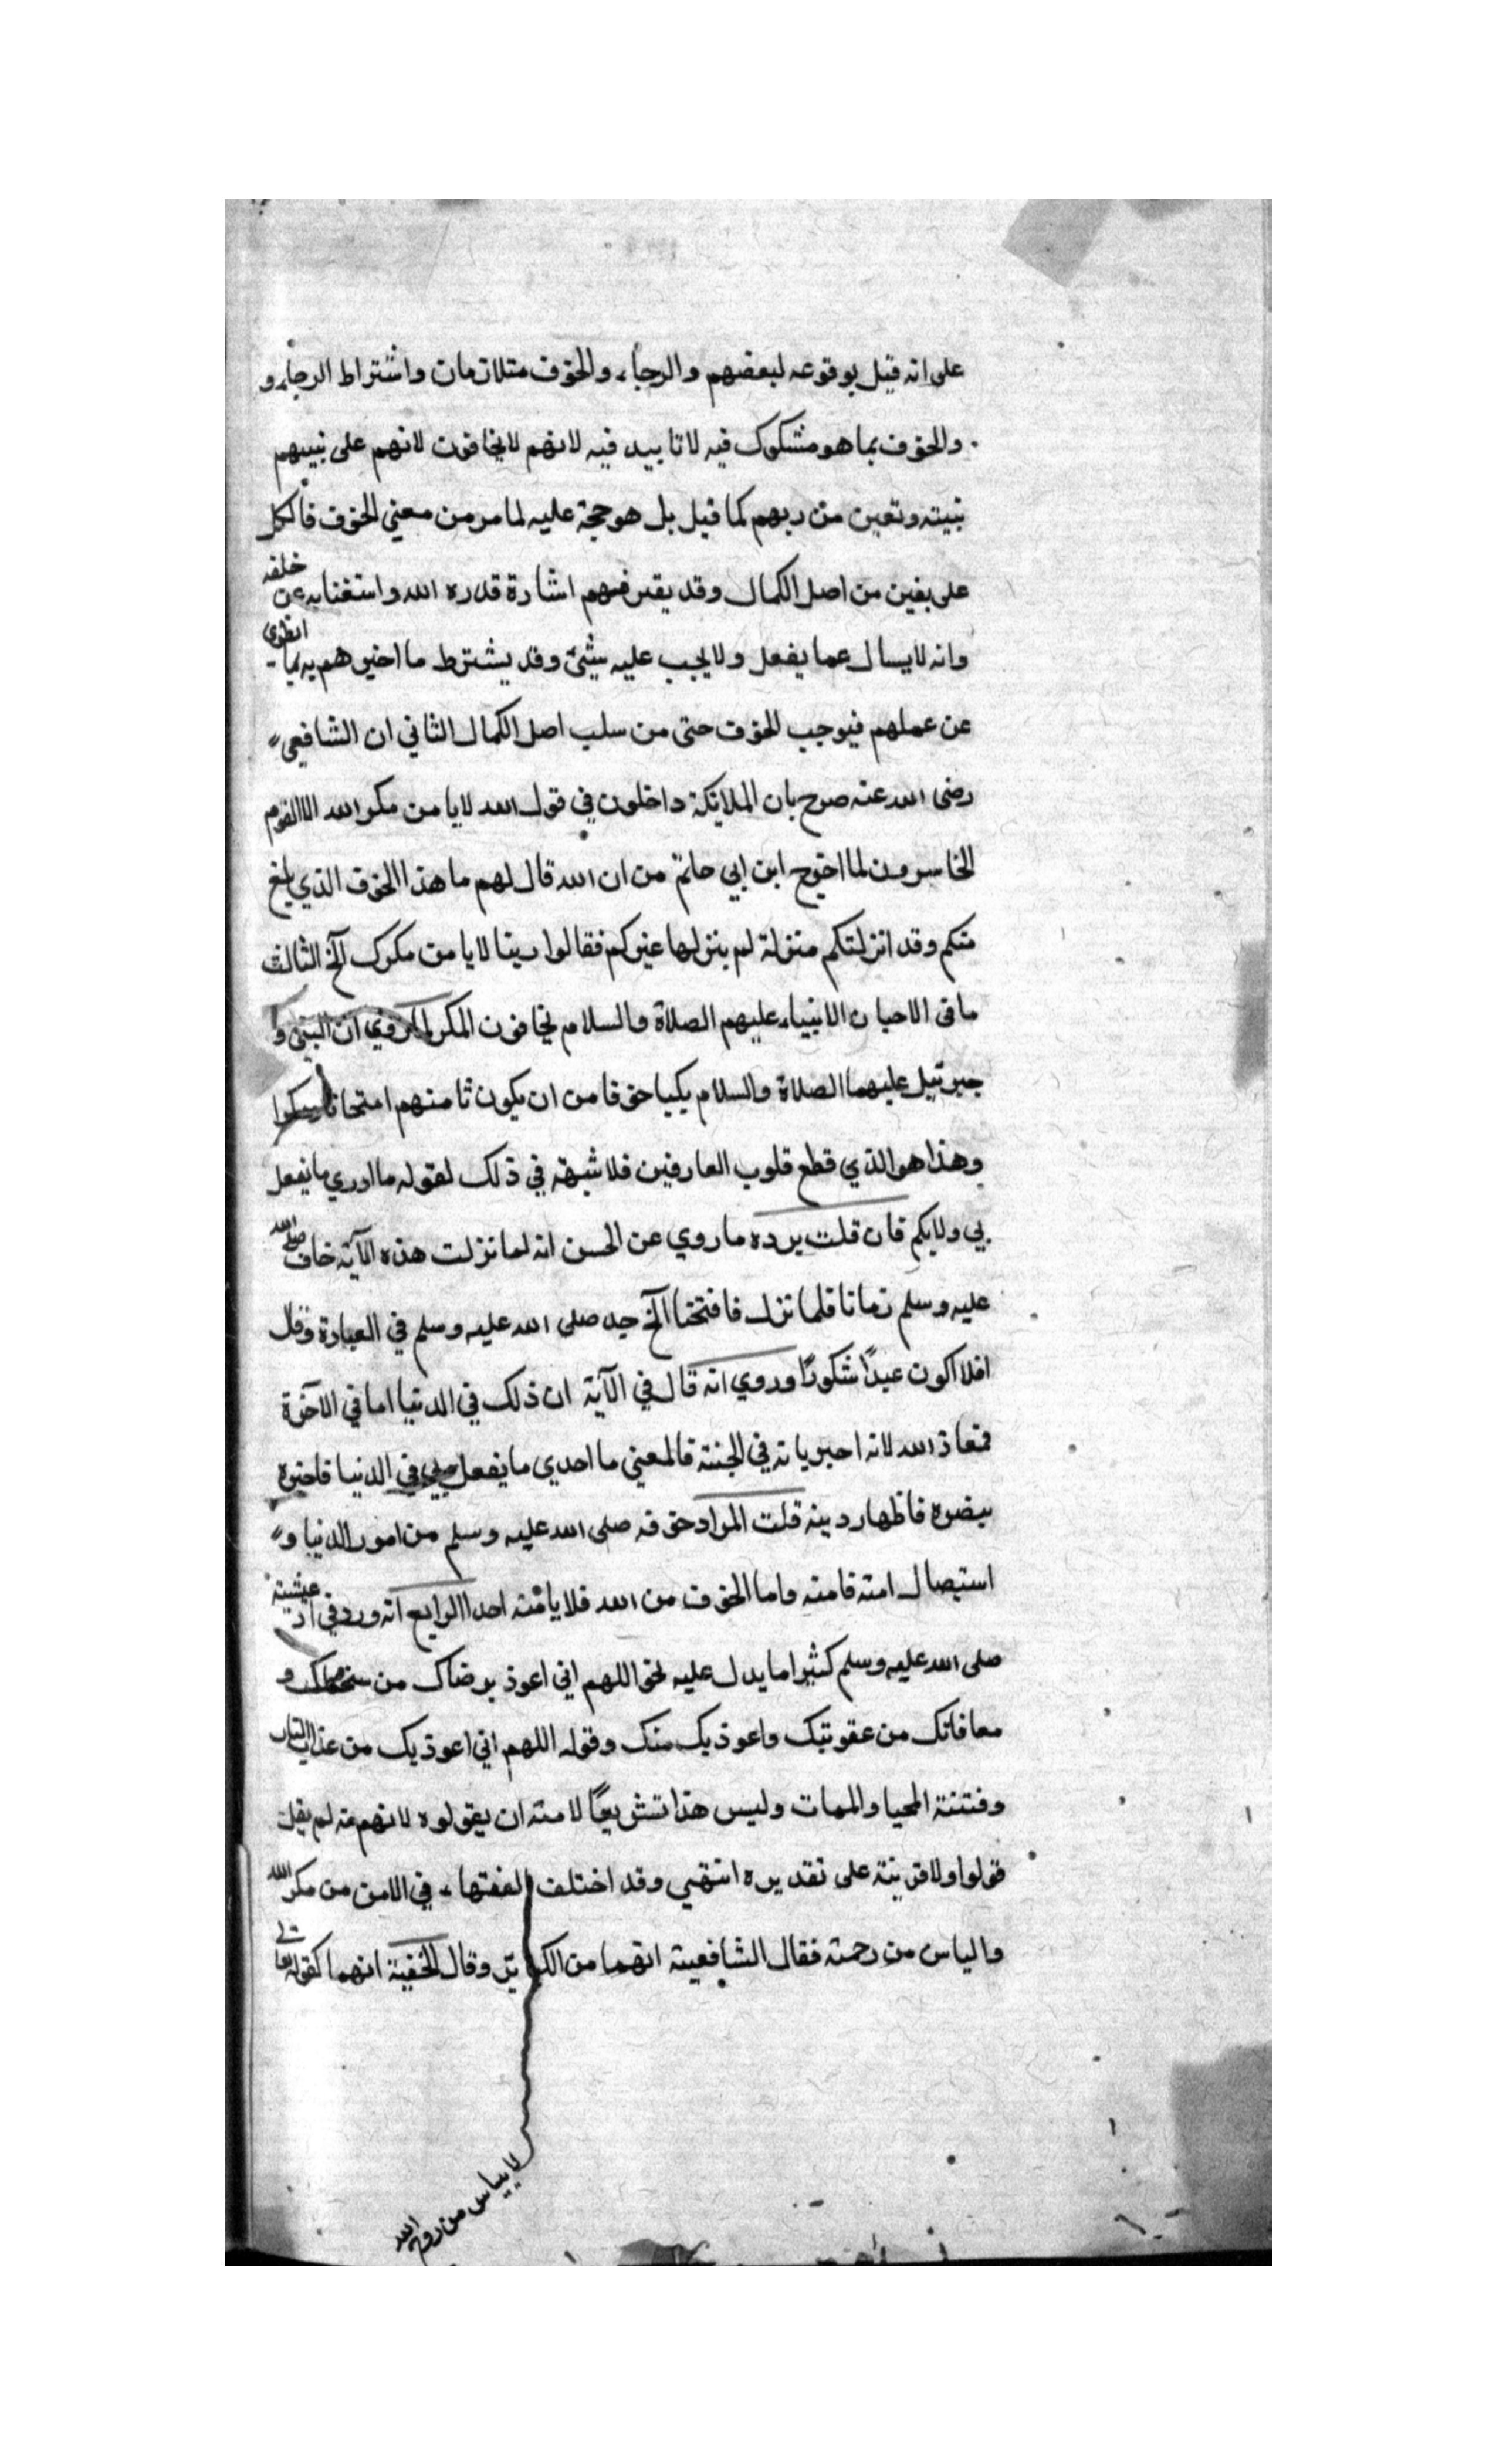 على انه قيل بوقوعه لبعضهم والرجاء والخوف متلازمان واشتراط الرجاء و
والخوف بما هو مشكوك فيه لا تاييد فيه لانهم لا يخافون لانهم على نبيهم
نبيته وتعين من ربهم كما قيل بل هو حجة عليه لما مر من معني الخوف فالكل
على يقين من اصل الكمال وقد يقترفهم اشارة قدره الله واستغنايه عن خلقه
وانه لا يسال عما يفعل ولا يجب عليه شئ وقد يشترط ما اخبرهم به بما انطوى
عن عملهم فيوجب الخوف حتى من سلب اصل الكمال الثاني ان الشافعي
رضى الله عنه صرح بان الملايكة داخلون في قول الله لا يامن مكر الله الا القوم
الخاسرون لما اخرج ابن ابي حاتم من ان الله قال لهم ما هذا الخوف الذي بلغ
منكم وقد انزلتكم منزلة لم ينزلها غيركم فقالوا ربنا لا يامن مكرك الخ الثالث
ما في الاحيا ن الانبياء عليهم الصلاة والسلام يخافون المكر لما روي ان النبي و
جبرئيل عليهما الصلاة والسلام بكيا خوفا من ان يكون تامنهم امتحانا
وهذا هو الذي قطع قلوب العارفين فلا شبهة في ذلك لقوله ما ادري ما يفعل
بي ولا بكم فان قلت يرده ما روي عن الحسن انه لما نزلت هذه الآية خاف صلى الله
عليه وسلم زمانا فلما نزل فا فتحنا الخ جد صلى الله عليه وسلم في العبادة وقال
افلا اكون عبدًا شكورًا وروي انه قال في الآية ان ذلك في الدنيا اما في الآخرة
فمعاذ الله لانه اخبر بانه في الجنة فالمعني ما ادري ما يفعل بي في الدنيا فاخبره
بنصره فاظهار دينه قلت المراد خوفه صلى الله عليه وسلم من امور الدنيا و
استيصال امته فامنه واما الخوف من الله فلا يامنه احدا الرابع انه ورد في ادعيته
صلى الله عليه وسلم كثيرا ما يدل عليه نحو اللهم اني اعوذ برضاك من سخطك و
معافاتك من عقوبتك واعوذ بك منك وقوله اللهم اني اعوذ بك من عذاب النار
وفتنة المحيا والممات وليس هذا تشريعًا لامته ان يقولوه لانهم لم يقل
قولوا ولا قرينة على تقديره انتهي وقد اختلف الفقهاء في الامن من مكر الله
والياس من رحمته فقال الشافعية انهما من الكبائر وقال الحنفية انهما كقوله تعالى
لا ييأس من روح الله